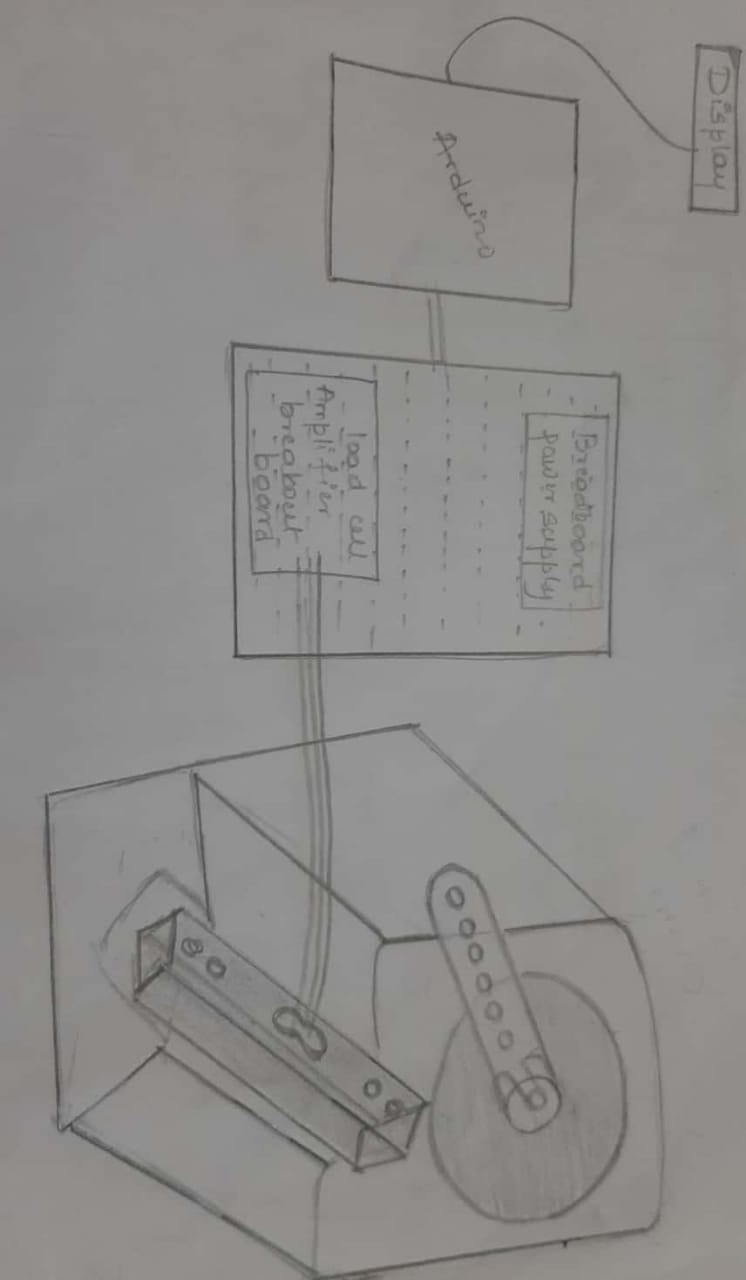 Display
Arduino
Breadboard
power supply
load cell
Amplifier
breakout
board